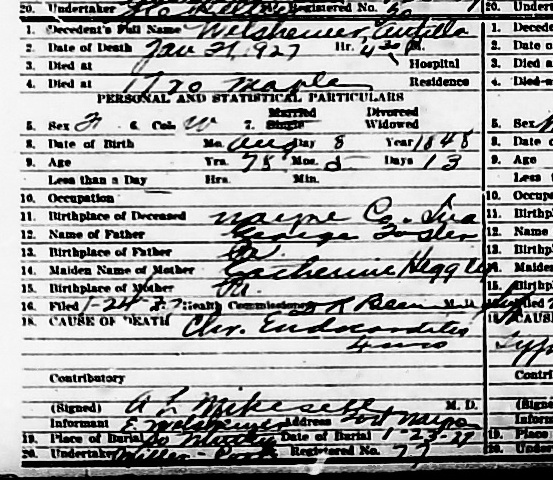 20. Undertaker Registered No. 20. Undert
1. Decedent's Full Name Welsheimer, Arvilla 1. Decede
2. Date of Death Jan 21, 1927 Hr. 4 30 M. 2. Date o
3. Died at Hospital 3. Died a
4. Died at 1720 Maple Residence 4. Died a
PERSONAL AND STATISTICAL PARTICULARS
Married Divorced
5. Sex F 6. Col. W 7. Single Widowed 5. Sex
8. Date of Birth Mo. Aug Day 8 Year 1848 8. Date o
9. Age Yrs. 78 Mos. 5 Days 13 9. Age
Less than a Day Hrs. Min. Less t
10. Occupation 10. Occup
11. Birthplace of Deceased Wayne Co. Ind 11. Birthp
12. Name of Father George Foster 12. Name
13. Birthplace of Father 13. Birthp
14. Maiden Name of Mother Catherine Heggler 14. Maiden
15. Birthplace of Mother 15. Birthp
16. Filed 1-24-27 Health Commissioner Bean M. D. Filed
18. CAUSE OF DEATH Chr. Endocarditis CAUS
Contributory Contri
(Signed) A L Mikesell M. D. (Signe
Informant E Welsheimer Address Fort Wayne Inform
19. Place of Burial So Whitley Date of Burial 1-23-27 19. Place
20. Undertaker Miller- Registered No. 77 20. Under